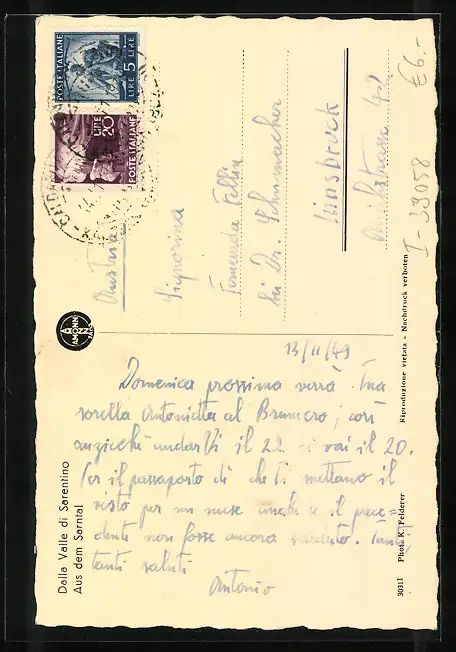 POSTE ITALIANE
LIRE 5 LIRE
LIRE
20
POSTE ITALIANE
€6.-
I-33058
Austria
Signorina
Fellin
bei Dr. Schumacher
Innsbruck
AMONN
BOZEN
13/11/49
Domenica prossima verrà tua
sorella Antonietta al Brennero; così
anzicchè andarVi il 22 ci vai il 20.
Per il passaporto dì che ti mettano il
visto per un mese anche se il prece-
dente non fosse ancora scaduto. Tanti,
tanti saluti
Antonio
Dalla Valle di Sarentino
Aus dem Sarntal
Riproduzione vietata - Nachdruck verboten
30311 Photo K. Felderer